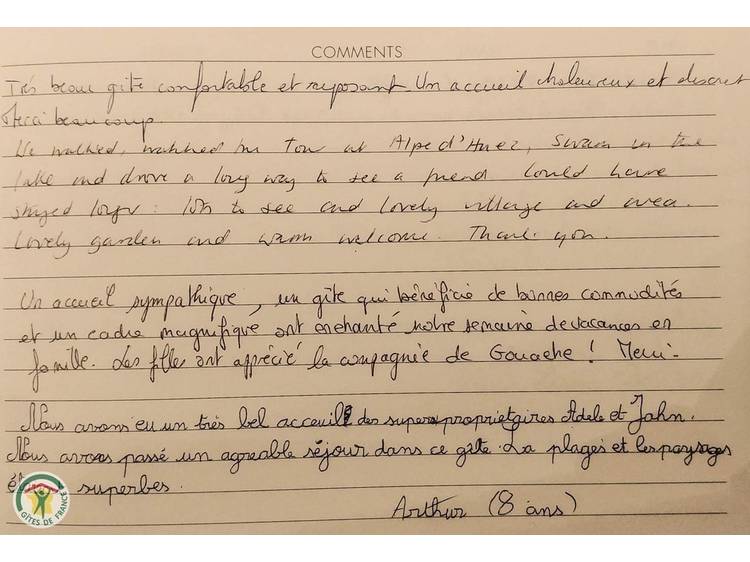 COMMENTS
Très beau gîte confortable et reposant. Un accueil chaleureux et discret
Merci beaucoup.
We walked, watched the Tour at Alpe d'Huez, swam in the
lake and drove a long way to see a friend. Could have
stayed longer: lots to see and lovely village and area.
Lovely garden and warm welcome. Thank you.
Un accueil sympathique, un gîte qui bénéficie de bonnes commodités
et un cadre magnifique ont enchanté notre semaine de vacances en
famille. Les filles ont apprécié la compagnie de Gouache! Merci.
Nous avons eu un très bel acceuil des supers propriétaires Adele et John.
Nous avons passé un agreable séjour dans ce gîte. La plage et les paysages
superbes.
Arthur (8 ans)
GÎTES DE FRANCE